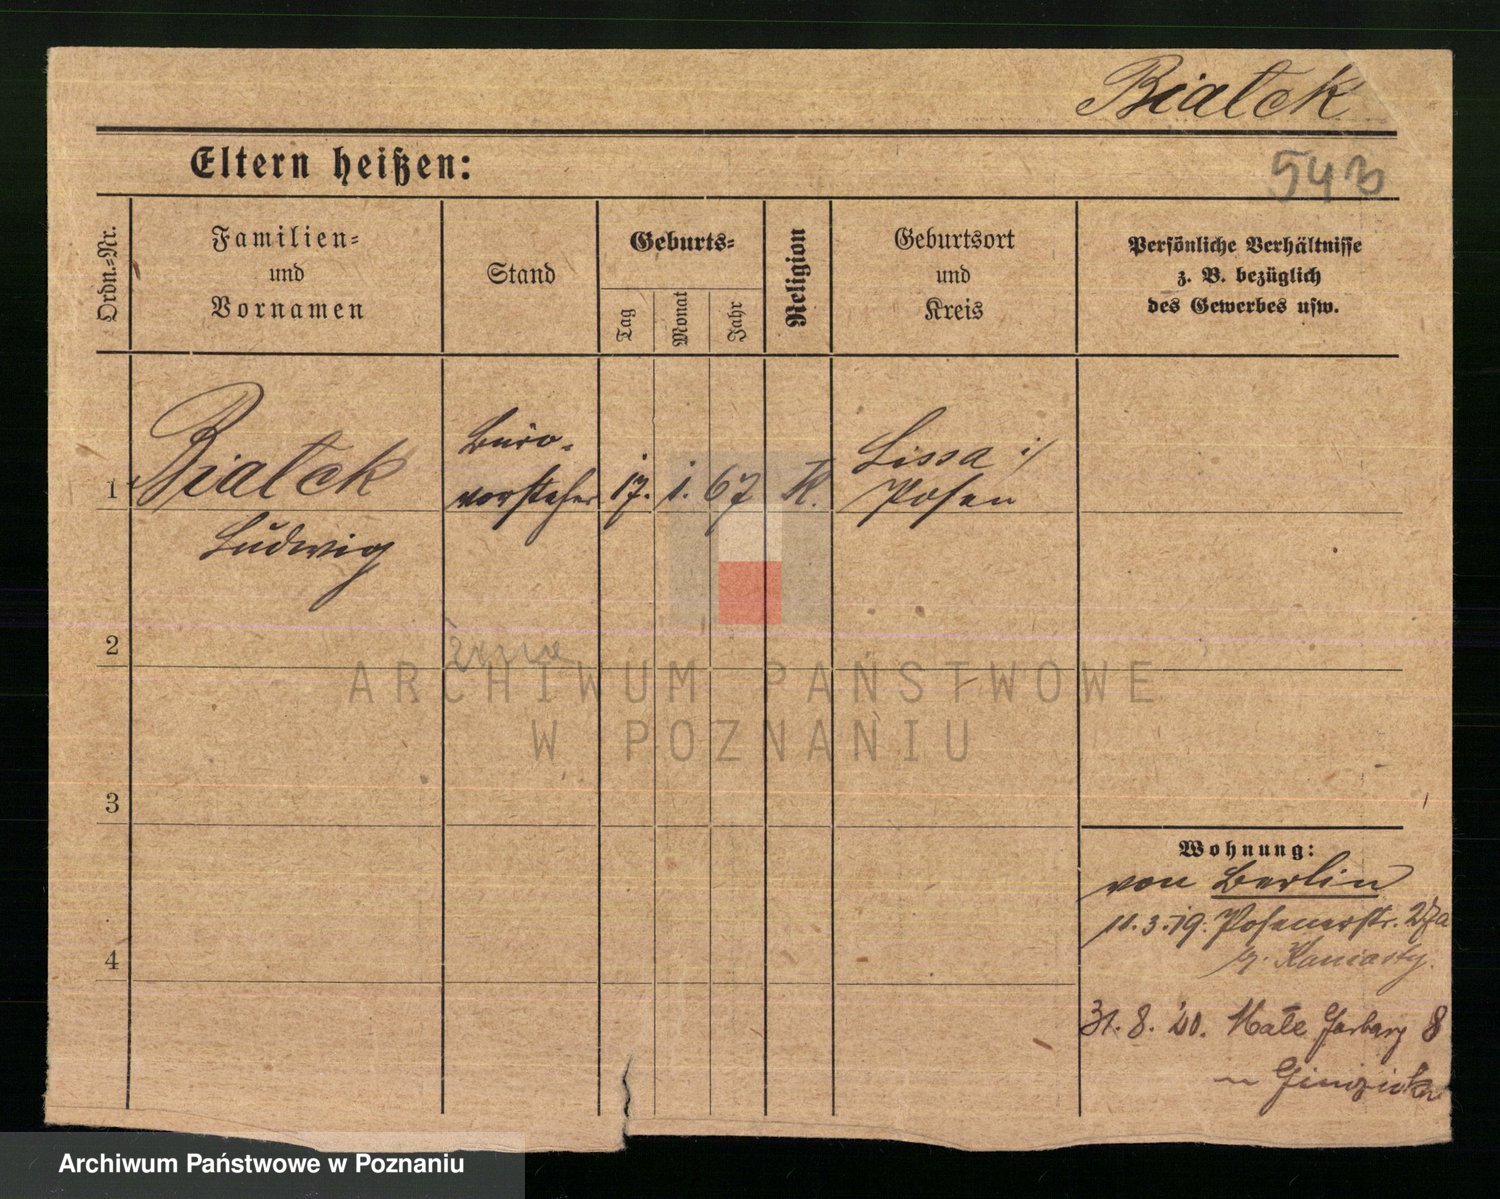 Białek
Eltern heißen:
543
Ordn.-Nr.
Familien-
und
Vornamen
Stand
Geburts-
Tag
Monat
Jahr
Religion
Geburtsort
und
Kreis
Persönliche Verhältnisse
z. B. bezüglich
des Gewerbes usw.
1
Białek
Ludwig
Büro-
vorsteher
17. 1. 67
K.
Lissa i/
Posen
2
3
4
Wohnung:
von Berlin
11. 3. 19. Posenerstr. 27a
b. Kaniasty.
31. 8. 20. Małe Garbary 8
ARCHIWUM PAŃSTWOWE
W POZNANIU
Archiwum Państwowe w Poznaniu